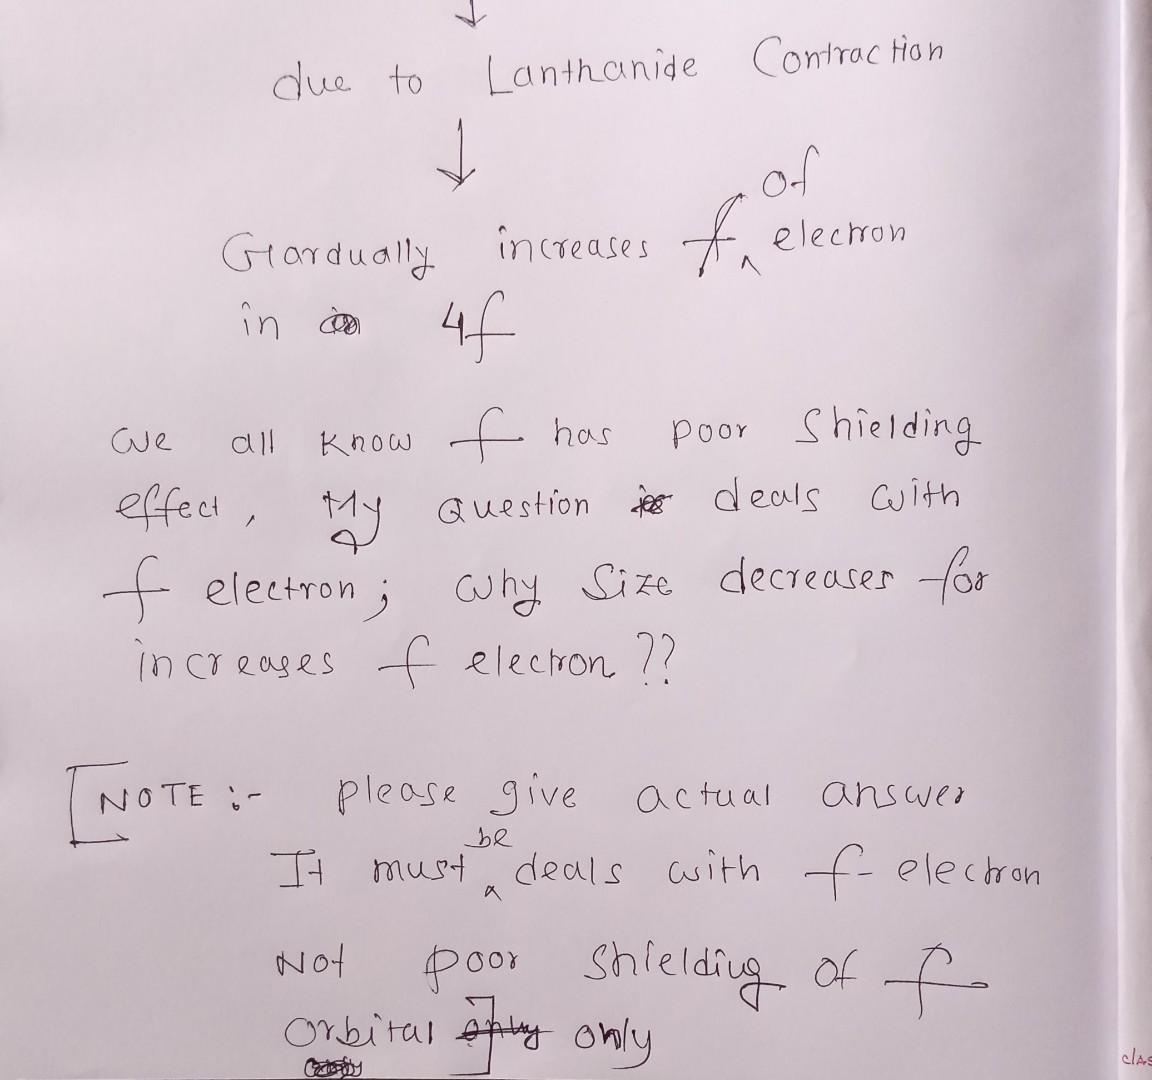 due to Lanthanide Contraction
Gardually increases f of electron
in 4f
we all know f has poor shielding
effect, My question deals with
f electron; why size decreases for
increases f electron ??
[NOTE :- please give actual answer
It must be deals with f- electron
Not poor shielding of f
orbital ] only
clas